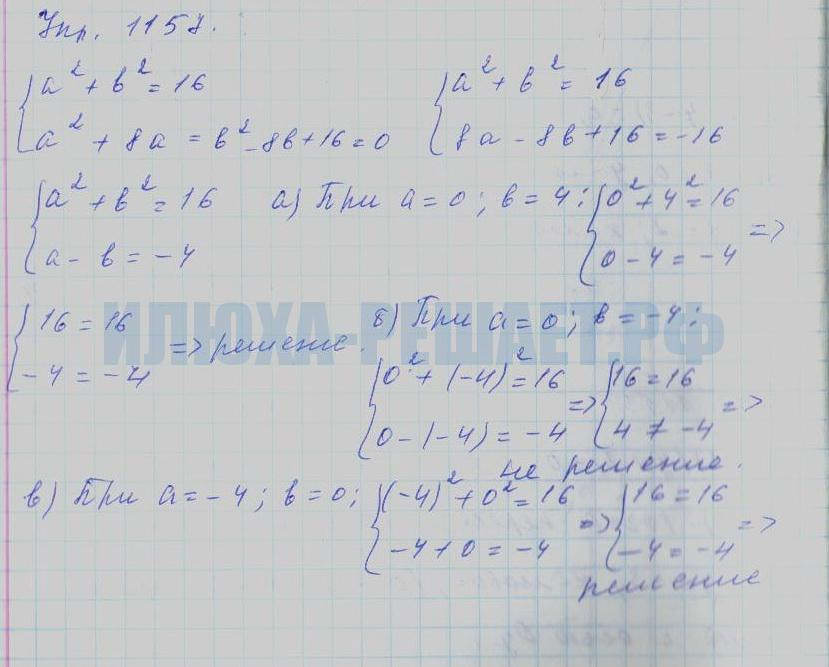 Упр. 1157.
{a² + b² = 16
{a² + 8a = b² - 8b + 16 = 0
{a² + b² = 16
{8a - 8b + 16 = -16
{a² + b² = 16
{a - b = -4
а) При a = 0; b = 4: {0² + 4² = 16
{0 - 4 = -4 =>
{16 = 16
{-4 = -4 => решение.
б) При a = 0; b = -4:
{0² + (-4)² = 16
{0 - (-4) = -4 => {16 = 16
{4 ≠ -4 =>
не решение.
в) При a = -4; b = 0; {(-4)² + 0² = 16
{-4 + 0 = -4 => {16 = 16
{-4 = -4 =>
решение
ИЛЮХА-РЕШАЕТ.РФ